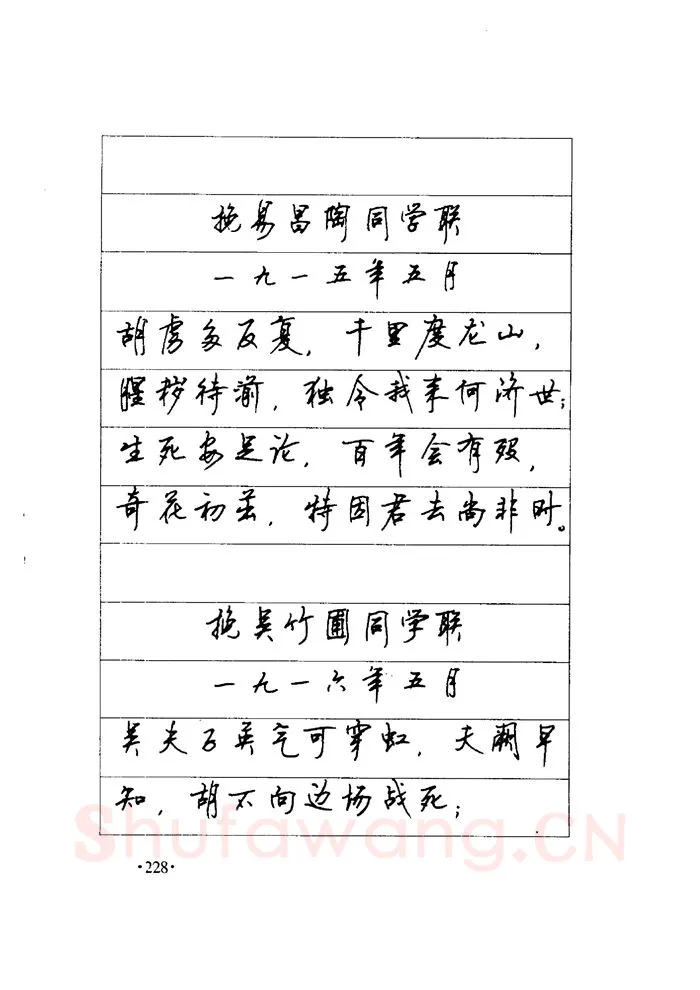 挽易昌陶同学联
一九一五年五月
胡虏多反复，千里度龙山，
腥秽待湔，独令我来何济世；
生死安足论，百年会有殁，
奇花初茁，特因君去尚非时。
挽吴竹圃同学联
一九一六年五月
吴夫子英气可穿虹，夭阏早
知，胡不向边场战死；
Shufawang.CN
·228·